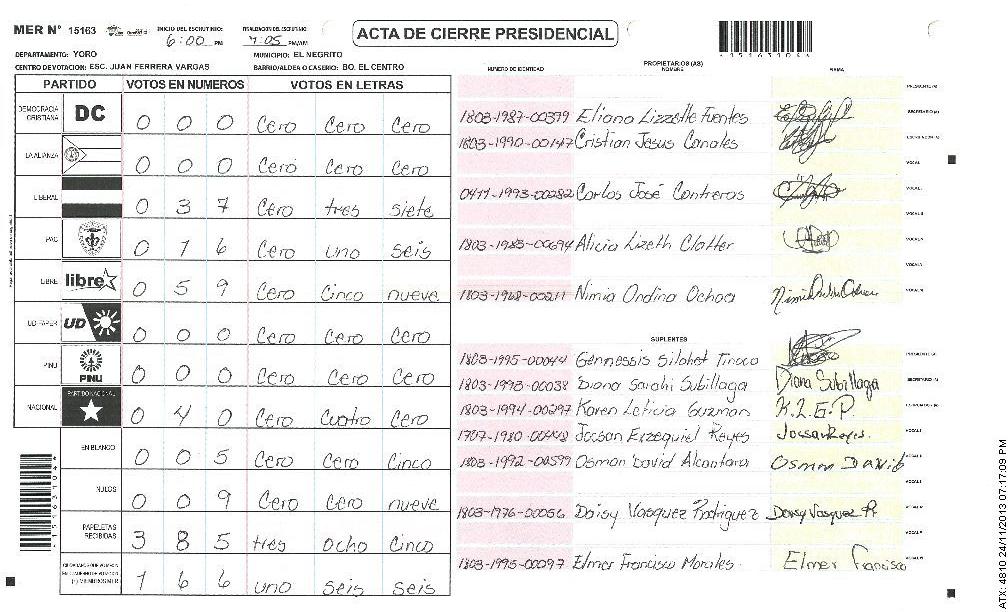 MER Nº 15163 INICIO DEL ESCRUTINIO: 6:00 PM FINALIZACION DEL ESCRUTINIO 7:05 PM/AM
ACTA DE CIERRE PRESIDENCIAL
DEPARTAMENTO: YORO MUNICIPIO: EL NEGRITO
CENTRO DE VOTACION: ESC. JUAN FERRERA VARGAS BARRIO/ALDEA O CASERIO: BO. EL CENTRO
PARTIDO VOTOS EN NUMEROS VOTOS EN LETRAS
DEMOCRACIA CRISTIANA DC 0 0 0 Cero Cero Cero
LA ALIANZA 0 0 0 Cero Cero Cero
LIBERAL 0 3 7 Cero tres siete
PAC 0 1 6 Cero uno seis
LIBRE libre 0 5 9 Cero Cinco nueve
UD FAPER UD 0 0 0 Cero Cero Cero
PINU PINU 0 0 0 Cero Cero Cero
NACIONAL PARTIDO NACIONAL 0 4 0 Cero Cuatro Cero
EN BLANCO 0 0 5 Cero Cero Cinco
NULOS 0 0 9 Cero Cero nueve
PAPELETAS RECIBIDAS 3 8 5 tres Ocho Cinco
1 6 6 uno seis seis
NUMERO DE IDENTIDAD PROPIETARIOS (AS) NOMBRE FIRMA
1803-1987-00379 Eliana Lizzette Fuentes
1803-1990-00147 Cristian Jesus Canales
Carlos José Contreras
Alicia Lizeth Clotter
1803-1968-00211 Nimia Ondina Ochoa
SUPLENTES
1803-1995-00044 Tinoco
1803-1993-00038 Diana Sarahi Subillaga Diana Subillaga
1803-1994-00297 Karen Leticia Guzman K.L.G.P.
Reyes
1803-1992-00599 Osman David Alcantara Osman David
1803-1976-00056 Daisy Vasquez Rodriguez Daisy Vasquez R.
1803-1995-00097 Elmer Francisco Morales Elmer Francisco
ATX: 4810 24/11/2013 07:17:09 PM